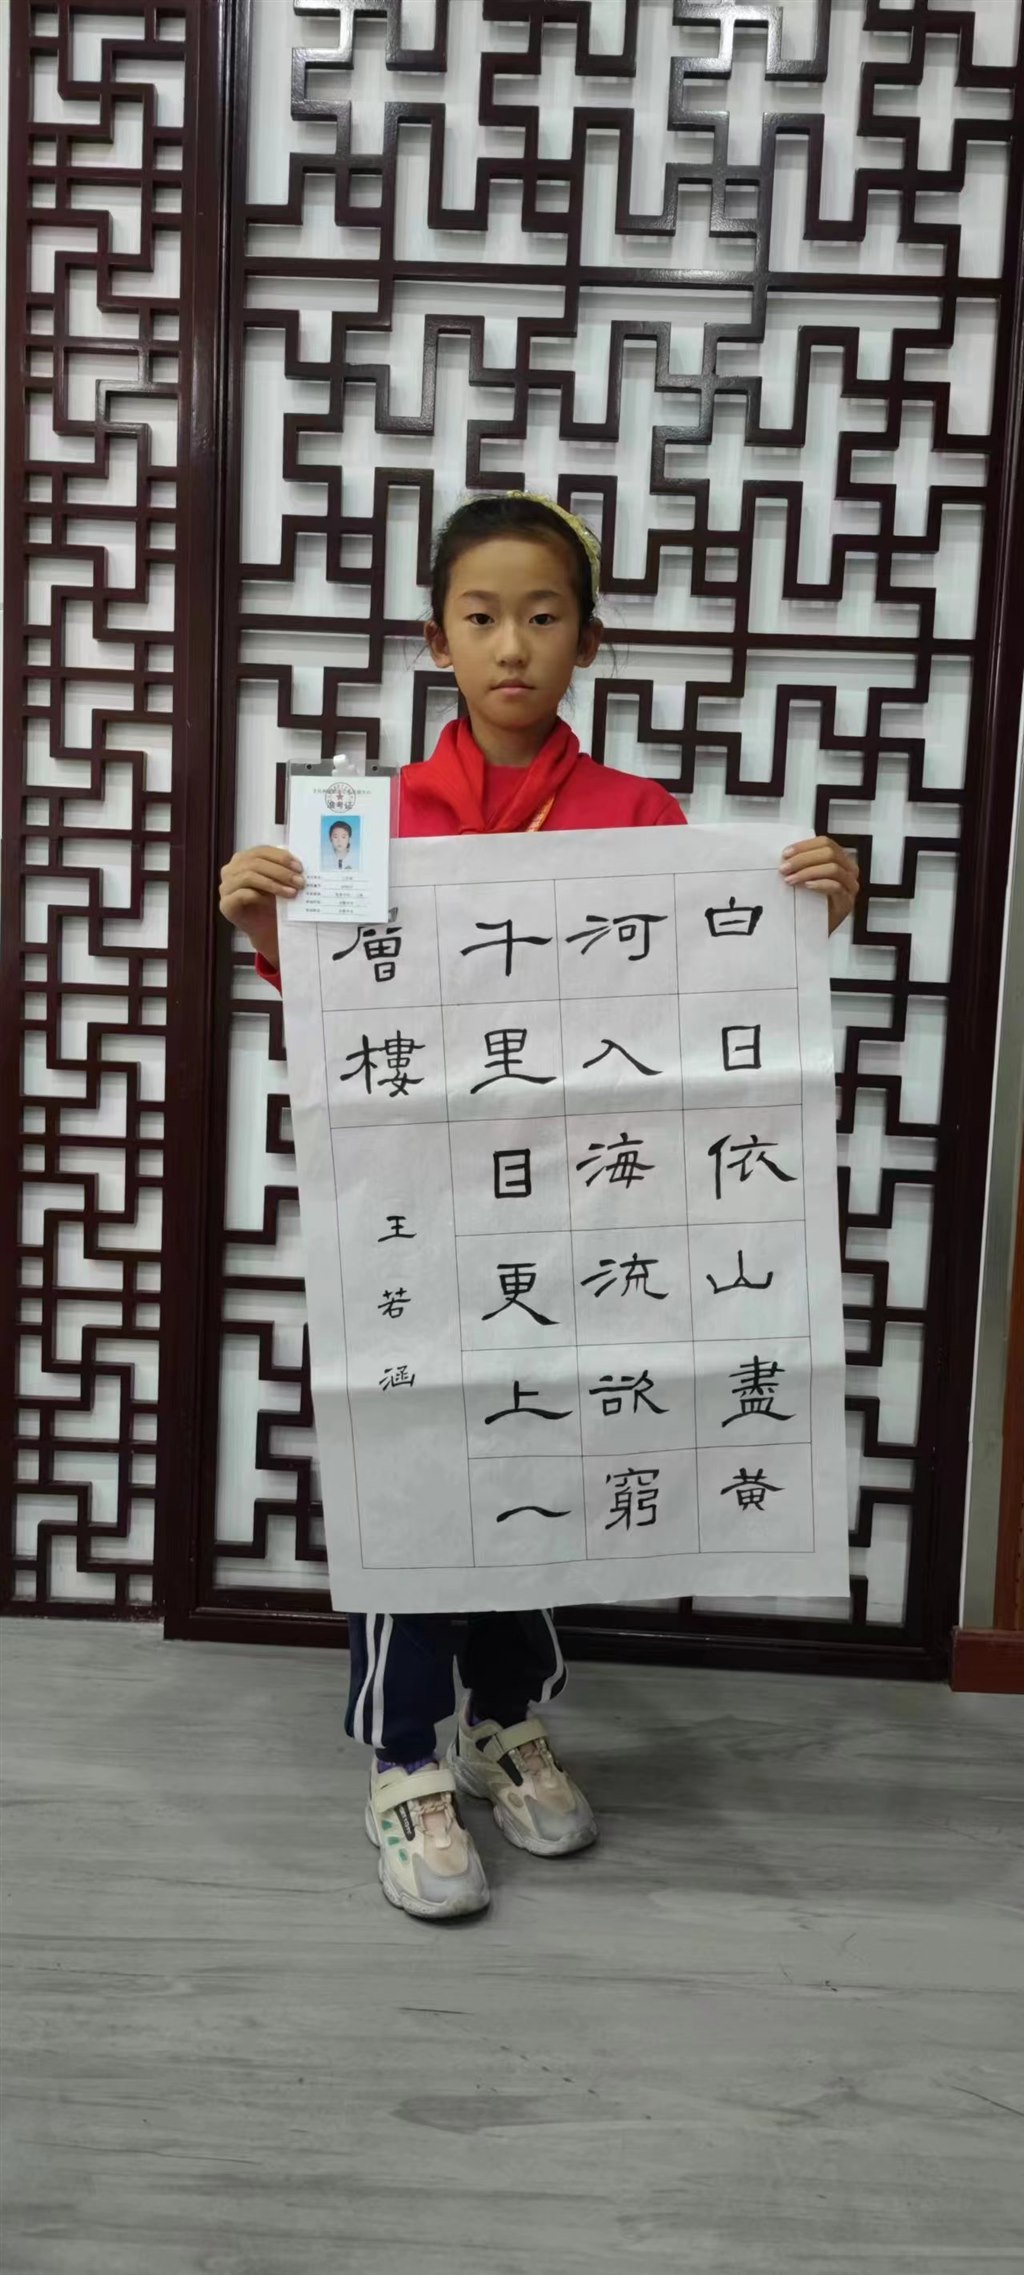 准考证
白日依山盡黄
河入海流欲窮
千里目更上一
層樓
王若涵